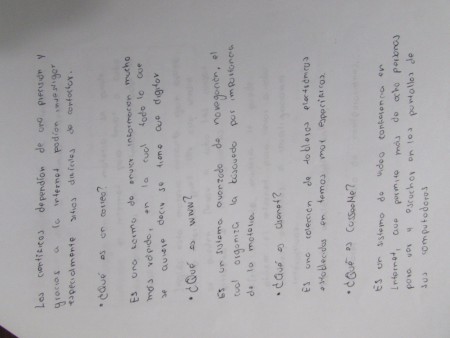 Los científicos dependían de una precisión y
gracias a la internet podían investigar
especialmente sitios difíciles de contactar.
• ¿Qué es un correo?
Es una forma de enviar información mucho
más rápida, en la cual todo lo que
se quiere decir se tiene que digitar
• ¿Qué es WWW?
Es un sistema avanzado de navegación, el
cual organiza la búsqueda por importancia
de la materia.
• ¿Qué es Usenet?
Es una colección de tableros electrónicos
establecidos en temas muy específicos.
• ¿Qué es CuSeeMe?
Es un sistema de video conferencia en
Internet, que permite más de ocho personas
para ver y escuchar en las pantallas de
sus computadores